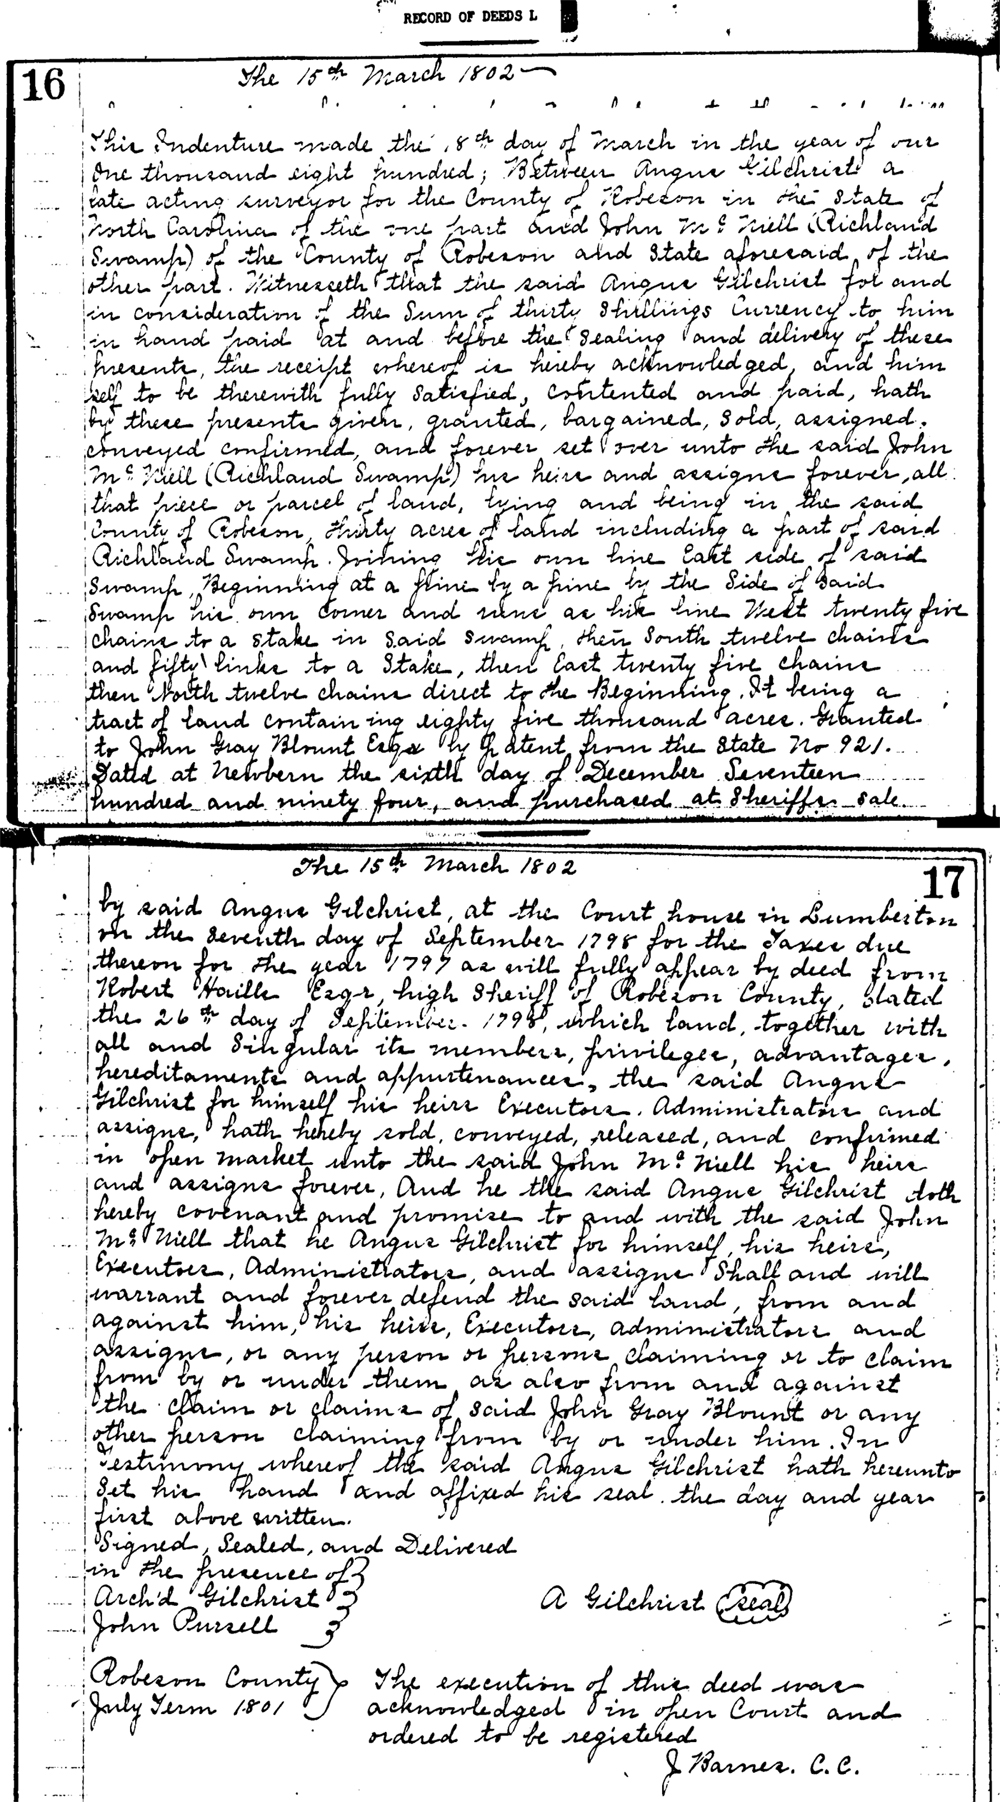 RECORD OF DEEDS L
16
The 15th March 1802
This Indenture made the 18th day of March in the year of our
One thousand eight hundred; Between Angus Gilchrist a
late acting surveyor for the County of Robeson in the State of
North Carolina of the one part and John Mc Niell (Richland
Swamp) of the County of Robeson and State aforesaid of the
other part. Witnesseth that the said Angus Gilchrist for and
in consideration of the Sum of thirty Shillings Currency to him
in hand paid at and before the Sealing and delivery of these
presents, the receipt whereof is hereby acknowledged, and him
self to be therewith fully Satisfied, contented and paid, hath
by these presents given, granted, bargained, Sold, assigned.
conveyed confirmed, and forever set over unto the said John
Mc Niell (Richland Swamp) his heirs and assigns forever, all
that piece or parcel of land, lying and being in the said
County of Robeson, thirty acres of land including a part of said
Richland Swamp. Joining his own line East side of said
Swamp, Beginning at a pine by a pine by the Side of Said
Swamp his own Corner and runs as his line West twenty five
chains to a stake in Said Swamp, then South twelve chains
and fifty links to a Stake, then East twenty five chains
then North twelve chains direct to the Beginning. It being a
tract of land containing eighty five thousand acres. Granted
to John Gray Blount Esqr by Patent from the State No 921.
Dated at Newbern the sixth day of December Seventeen
hundred and ninety four, and purchased at Sheriffs sale
The 15th March 1802
17
by said Angus Gilchrist, at the Court house in Lumberton
on the Seventh day of September 1798 for the Taxes due
thereon for the year 1797 as will fully appear by deed from
Robert Haills Esqr, high Sheriff of Robeson County, dated
the 26th day of September. 1798, which land, together with
all and Singular its members, privileges, advantages,
hereditaments and appurtenances, the said Angus
Gilchrist for himself his heirs Executors. Administrators and
assigns, hath hereby sold, conveyed, released, and confirmed
in open market unto the said John Mc Niell his heirs
and assigns forever, And he the said Angus Gilchrist doth
hereby covenant and promise to and with the said John
Mc Niell that he Angus Gilchrist for himself, his heirs,
Executors, Administrators, and assigns Shall and will
warrant and forever defend the said land, from and
against him, his heirs, Executors, administrators and
assigns, or any person or persons claiming or to claim
from by or under them as also from and against
the claim or claims of said John Gray Blount or any
other person claiming from by or under him. In
Testimony whereof the said Angus Gilchrist hath hereunto
Set his hand and affixed his seal. the day and year
first above written.
Signed, Sealed, and Delivered
in the presence of
Arch'd Gilchrist A Gilchrist seal
John Pursell
Robeson County The execution of this deed was
July Term 1801 acknowledged in open Court and
ordered to be registered
J Barnes. C.C.